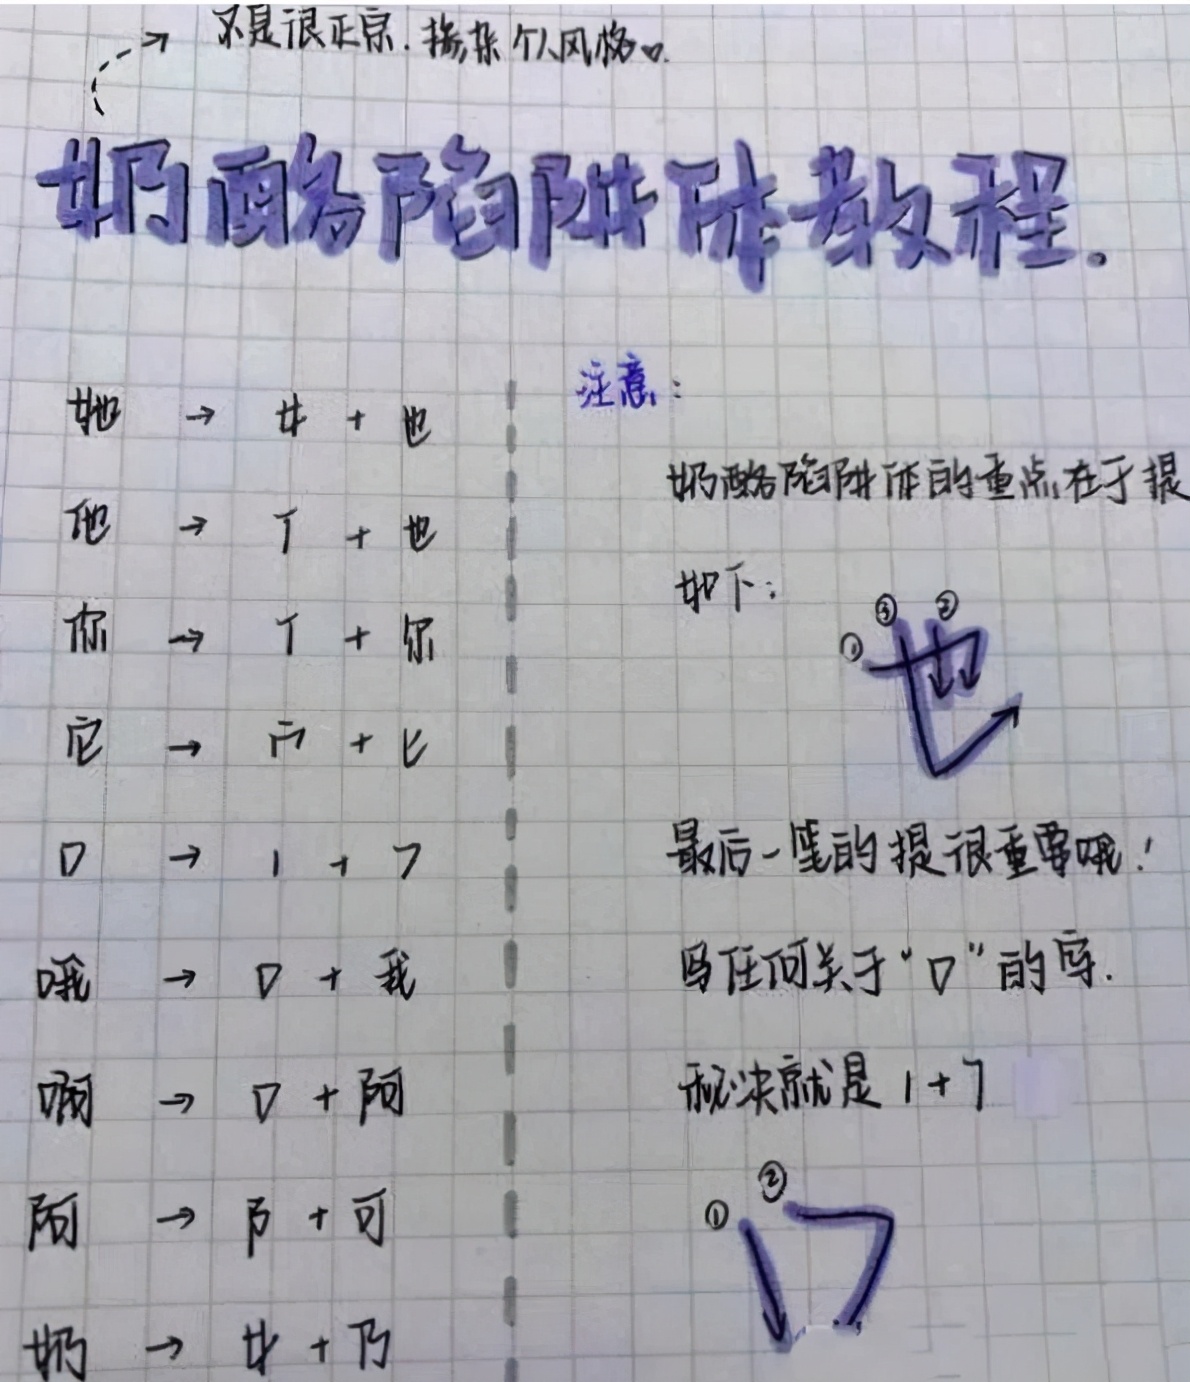 不是很正宗.掺杂个人风格。
奶酪陷阱体教程.
她 → 女 + 也
他 → 亻 + 也
你 → 亻 + 尔
它 → 宀 + 匕
口 → 丨 + ㄱ
哦 → 口 + 我
啊 → 口 + 阿
阿 → 阝 + 可
奶 → 女 + 乃
注意:
奶酪陷阱体的重点在于提
如下:
① ③ ②
也
最后一笔的提很重要哦!
写任何关于“口”的字.
秘决就是 1+7
① ②
口